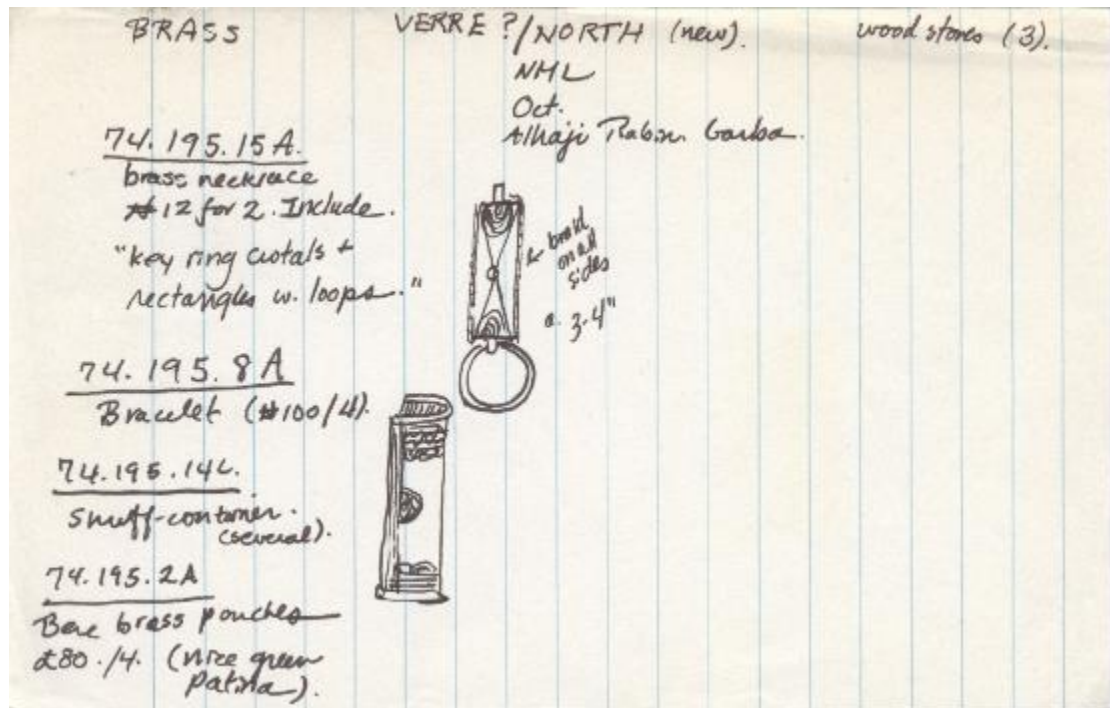 BRASS VERRE ?/NORTH (new). wood stores (3).
NML
Oct.
Alhaji Rabin. Garba.
74.195.15A.
brass necklace
#12 for 2. Include.
"key ring crotals +
rectangles w. loops."
braid
on all
sides
a. 3-4"
74.195.8A
Bracelet (#100/4).
74.195.14L.
snuff-container.
(several).
74.195.2A
brass pouches
£80./4. (nice green
patina).